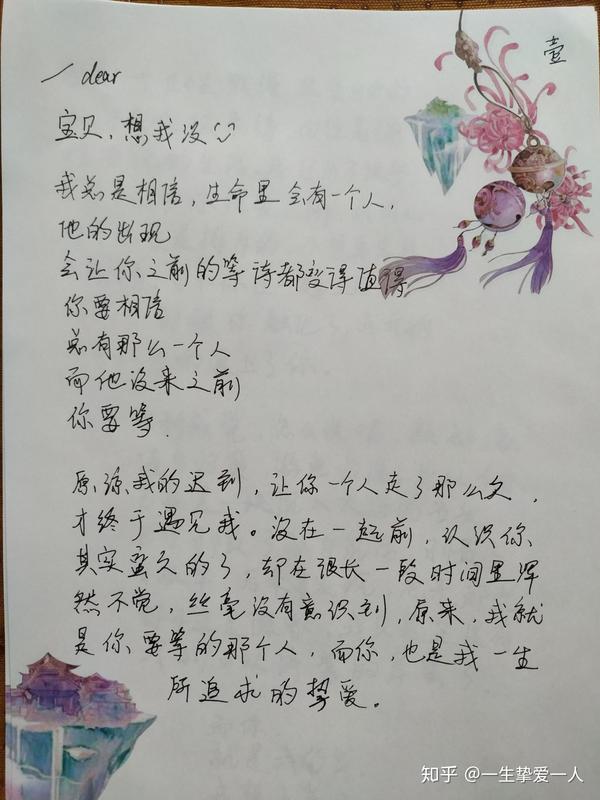 壹
dear
宝贝，想我没
我总是相信，生命里会有一个人，
他的出现
会让你之前的等待都变得值得
你要相信
总有那么一个人
而他没来之前
你要等.
原谅我的迟到，让你一个人走了那么久，
才终于遇见我。没在一起前，认识你
其实蛮久的了，却在很长一段时间里浑
然不觉，丝毫没有意识到，原来，我就
是你要等的那个人，而你，也是我一生
所追求的挚爱。
知乎 @一生挚爱一人